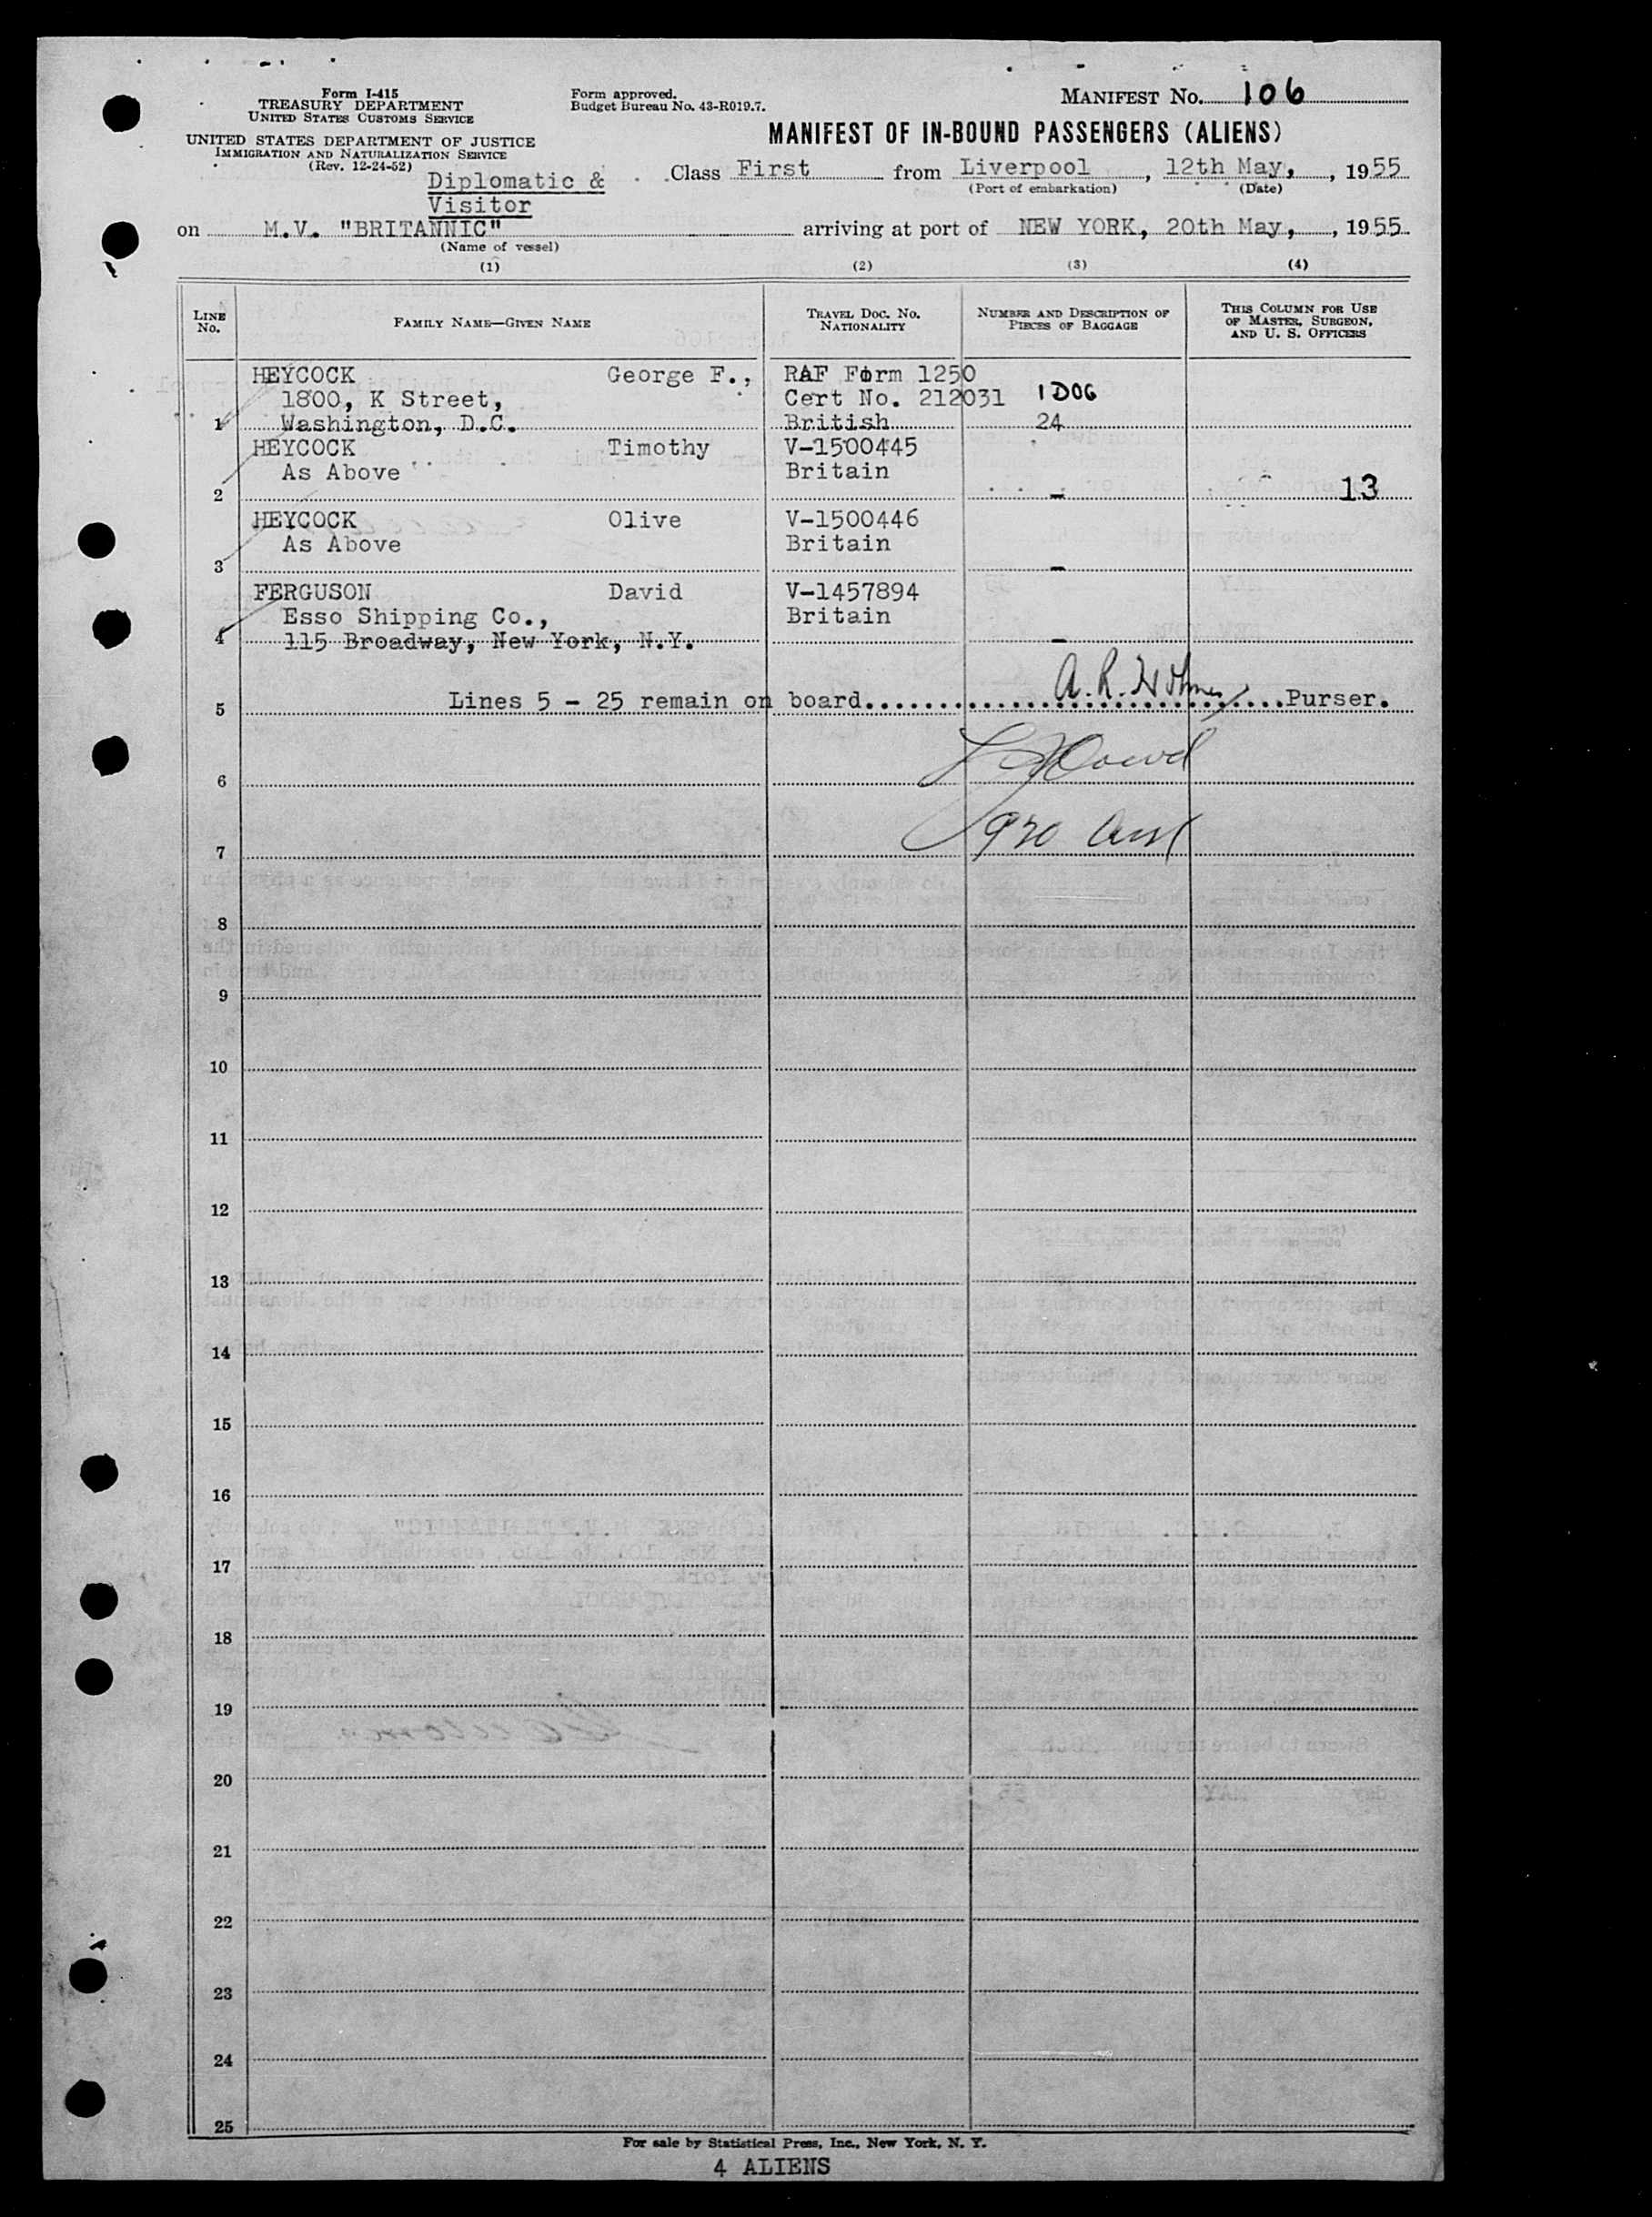 Form I-415
TREASURY DEPARTMENT
UNITED STATES CUSTOMS SERVICE
UNITED STATES DEPARTMENT OF JUSTICE
IMMIGRATION AND NATURALIZATION SERVICE
(Rev. 12-24-52)
Form approved.
Budget Bureau No. 43-R019.7.
MANIFEST No. 106
MANIFEST OF IN-BOUND PASSENGERS (ALIENS)
Diplomatic &
Visitor
Class First from Liverpool, 12th May, , 1955
(Port of embarkation) (Date)
on M.V. "BRITANNIC" arriving at port of NEW YORK, 20th May, , 1955
(Name of vessel)
(1) (2) (3) (4)
LINE No. FAMILY NAME—GIVEN NAME TRAVEL DOC. NO. NATIONALITY NUMBER AND DESCRIPTION OF PIECES OF BAGGAGE THIS COLUMN FOR USE OF MASTER, SURGEON, AND U. S. OFFICERS
HEYCOCK George F., RAF Form 1250
1800, K Street, Cert No. 212031 1 DOG
1 Washington, D.C. British 24
HEYCOCK Timothy V-1500445
As Above Britain
2 - 13
HEYCOCK Olive V-1500446
As Above Britain
3 -
FERGUSON David V-1457894
Esso Shipping Co., Britain
4 115 Broadway, New York, N.Y. -
5 Lines 5 - 25 remain on board. A. R. Purser.
6
7 930
8
9
10
11
12
13
14
15
16
17
18
19
20
21
22
23
24
25
For sale by Statistical Press, Inc., New York, N. Y.
4 ALIENS